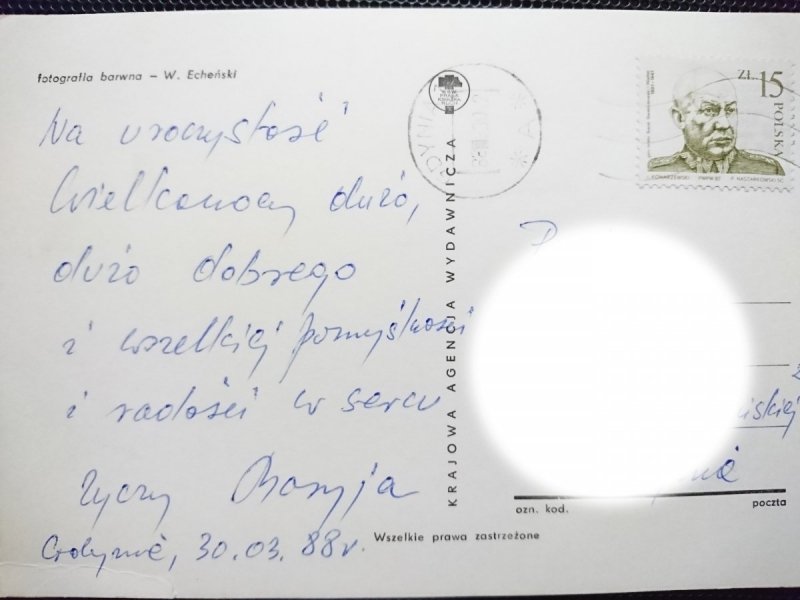 fotografia barwna – W. Echeński
Na uroczystość
Wielkanocy dużo,
dużo dobrego
i wszelkiej pomyślności
i radości w sercu
życzy
Gdynia, 30.03.88r.
KRAJOWA AGENCJA WYDAWNICZA
Wszelkie prawa zastrzeżone
ZŁ 15
POLSKA
ozn. kod.
poczta